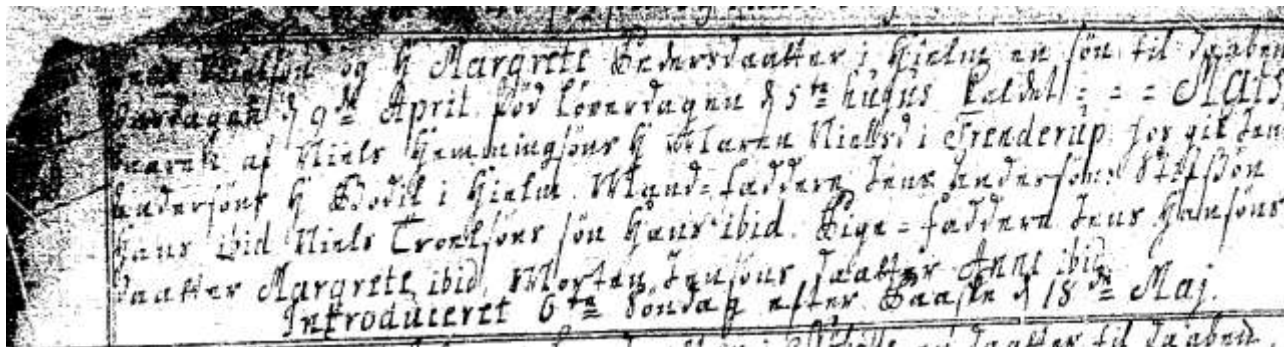 Nielsøn og H Margrete Pedersdaatter i Hielm en søn til daaben
d 9de April fød Løverdagen d 5te hujus kaldet = = = MADS
baaret af Niels Hemmingsøns H Maren Nielsd i Trenderup for gik Jens
Andersøns H Bodil i Hielm. Mand=faddere Jens Andersøns Stifsøn
Hans ibid Niels Troelsøns søn Hans ibid. Pige=faddere Jens Hansøns
daatter Margrete ibid, Morten Jensøns daatter Anne ibid
Introduceret 6te Søndag efter Paaske d 18de Maj.
daatter til daaben